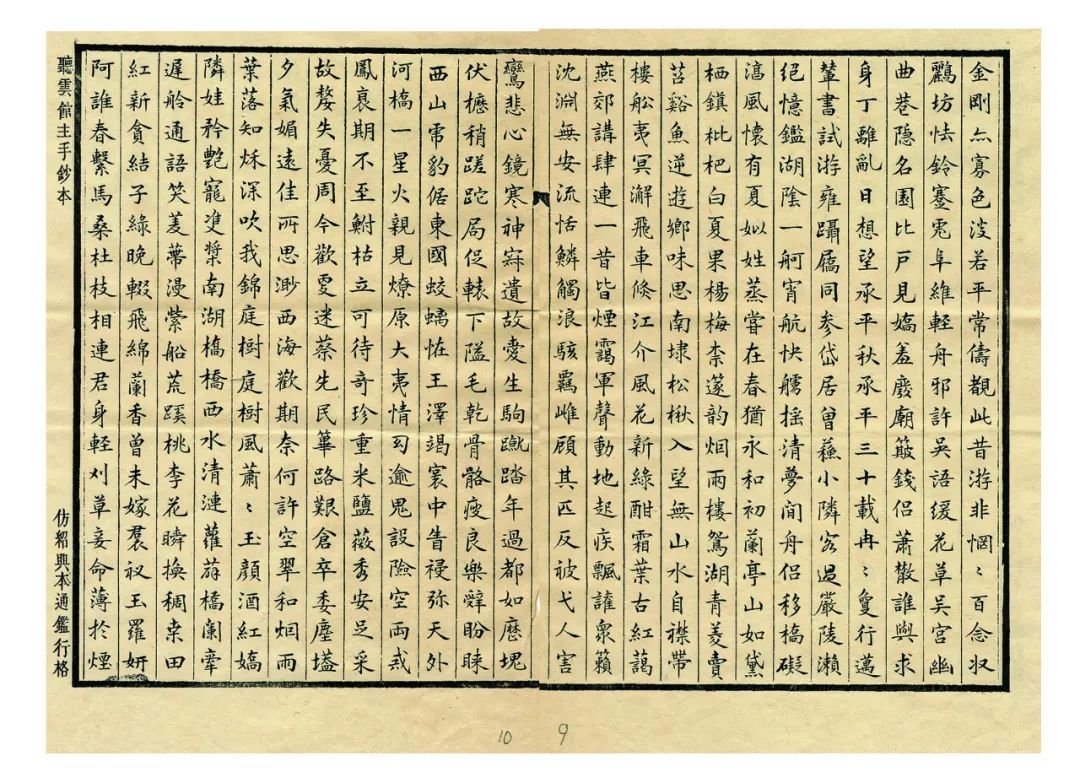 金剛亦寡色波若平常儔觀此昔游非惘〻百念㕛
酈坊怯鈴蹇兎阜維輕舟邪許吳語緩花草吳宮幽
曲巷隐名園比戸見嬌羞廢廟簸錢侶蕭散誰與求
身丁離亂日想望承平秋承平三十載冉〻夐行邁
輦書試游雍躡屩同参岱居曾蘓小隣客過嚴陵瀨
絕憶鑑湖陰一舸宵航快艣摇清夢间舟侣移橋礙
淓風懷有夏姒姓蒸嘗在春猶永和初蘭亭山如黛
栖鎮枇杷白夏果楊梅柰蓤韵烟雨樓鴛湖青菱賣
苕谿魚逆遊鄉味思南埭松楸入望無山水自襟帶
樓船夷冥澥飛車倏江介風花新綠酣霜葉古紅藹
燕郊講肆連一昔皆煙靄軍聲動地起疾飄謹衆籟
沈淵無安流恬鱗觸浪駭羈雌顧其匹反被弋人害
鸞悲心鏡寒神寐遺故愛生駒蹴踏年過都如歷塊
伏櫪稍蹉跎局促轅下隘毛乾骨骼瘦良樂辤盼睞
西山霄豹倨東國蛟螭怪王澤竭寰中眚祲弥天外
河橋一星火親見燎原大夷情叵逾鬼設險空両戒
鳳衰期不至鮒枯立可待奇珍重米鹽薇秀安足采
故嫠失憂周今歡更迷蔡先民蓽路艱倉卒委塵壒
夕氣媚遠佳所思渺西海歡期奈何許空翠和烟雨
葉落知秌深吹我錦庭樹庭樹風蕭〻玉顔酒紅嬌
隣娃矜艷寵雙槳南湖橋橋西水清漣蘿薜橋闌牽
遲舲通語笑菱蔕漫縈船荒蹊桃李花瞬換稠桒田
紅新貪結子綠晚輟飛綿蘭香曾未嫁裠衩玉羅妍
阿誰春繫馬桑杜枝相連君身輕刈草妾命薄於煙
聽雲館主手鈔本
仿紹興本通鑑行格
10
9